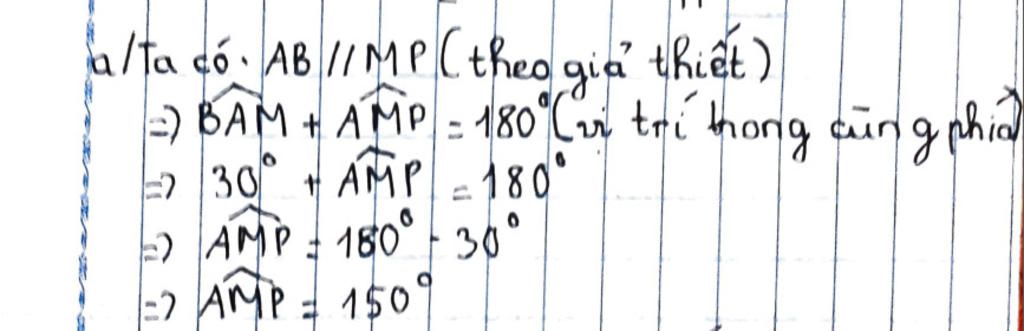 a/Ta có. AB // MP (theo giả thiết)
=> \widehat{BAM} + \widehat{AMP} = 180° (vị trí trong cùng phía)
=> 30° + \widehat{AMP} = 180°
=> \widehat{AMP} = 180° - 30°
=> \widehat{AMP} = 150°